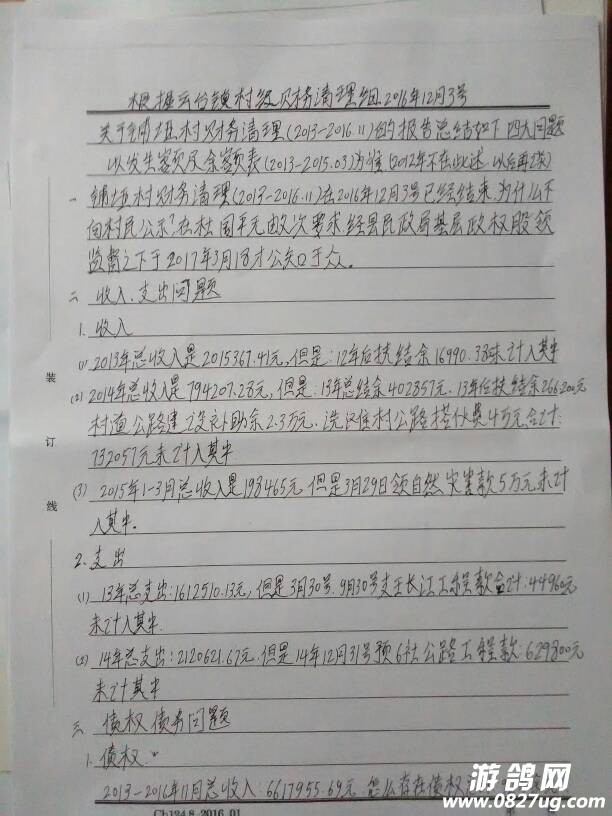 根据云台镇村级财务清理组2016年12月3号
关于铺垭村财务清理(2013-2016.11)的报告总结如下四大问题
以发生额及余额表(2013-2015.03)为准(2012年不在此述 以后再谈)
一 铺垭村财务清理(2013-2016.11)在2016年12月3号已经结束.为什么不
向村民公示?在杜国平元数次要求经县民政局基层政权股领
监督之下于2017年3月18才公示于众。
二 收入.支出问题
1. 收入
(1) 2013年总收入是2015367.41元,但是:12年后扶结余16990.38未计入其中
(2) 2014年总收入是794207.28元,但是.13年总结余402857元.13年后扶结余266200元
村道公路建设补助余2.3万元.洗 村公路搭伙费4万元合计:
732057元未计入其中
装
订
线
(3) 2015年1-3月总收入是198465元.但是3月29日领自然灾害款5万元未计
入其中.
2. 支出
(1) 13年总支出:1612510.13元,但是3月30号.9月30号支王长江工程款合计:44960元
未计入其中.
(2) 14年总支出:2120621.67元.但是14年12月31号预6社公路工程款:629800元
未计其中
三 债权.债务问题
1. 债权.
2013-2016年11月总收入:6617955.69元.怎么存在债权
Ch124.8 2016.01
游鸽网
www.0827ug.com